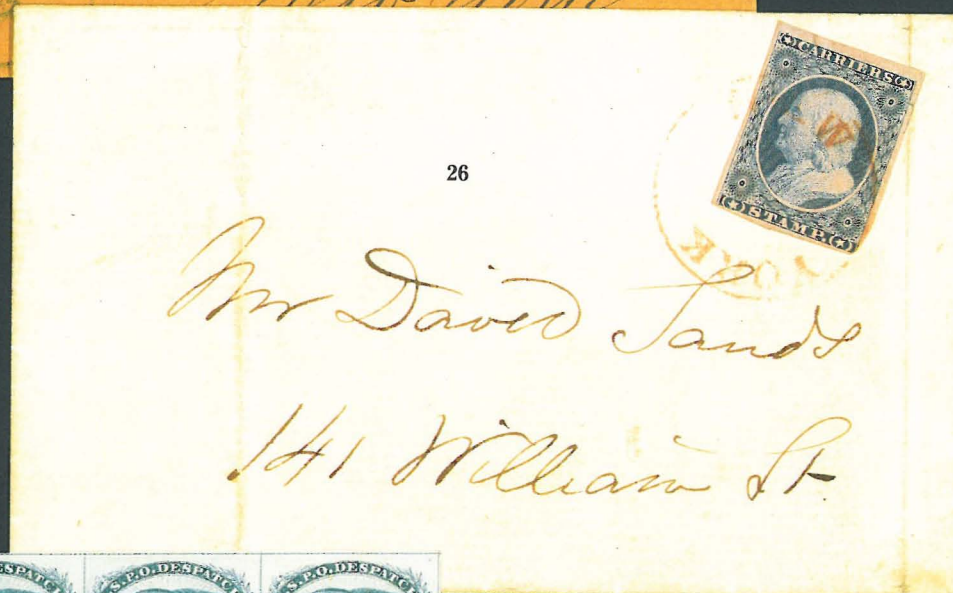 CARRIERS
STAMP.
W
YORK
26
Mr David Sands
141 William St
S.P.O. DESPATC
S.P.O. DESPATC